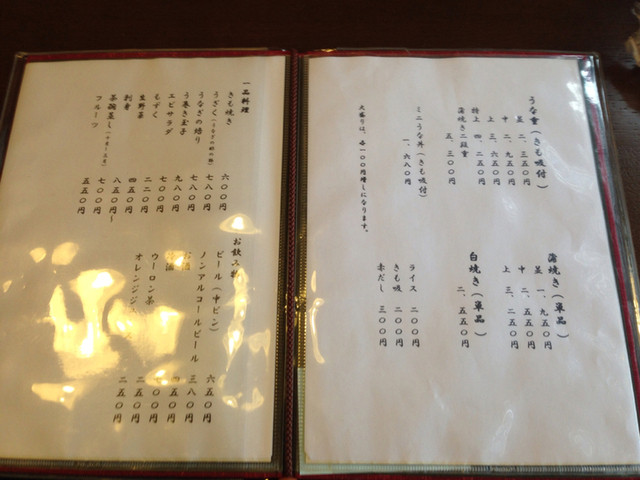 うな重（きも吸付）
並 二、三五〇円
中 二、九五〇円
上 三、六五〇円
特上 四、二五〇円
蒲焼き二段重
五、三〇〇円
ミニうな丼（きも吸付）
一、六八〇円
大盛りは、各一〇〇円増しになります。
蒲焼き（単品）
並 一、九五〇円
中 二、五五〇円
上 三、二五〇円
白焼き（単品）
二、五五〇円
ライス 二〇〇円
きも吸 二〇〇円
赤だし 三〇〇円
一品料理
きも焼き 六〇〇円
うざく（うなぎの酢の物） 七八〇円
うなぎの燻り 七八〇円
う巻き玉子 九八〇円
エビサラダ 七〇〇円
もずく 二二〇円
生野菜 四五〇円
刺身 八五〇円〜
茶碗蒸し 七〇〇円
フルーツ 五五〇円
お飲み物
ビール（中ビン） 六五〇円
ノンアルコールビール 三八〇円
酒 四五〇円
酒
ウーロン茶 二五〇円
オレンジジュース 二五〇円